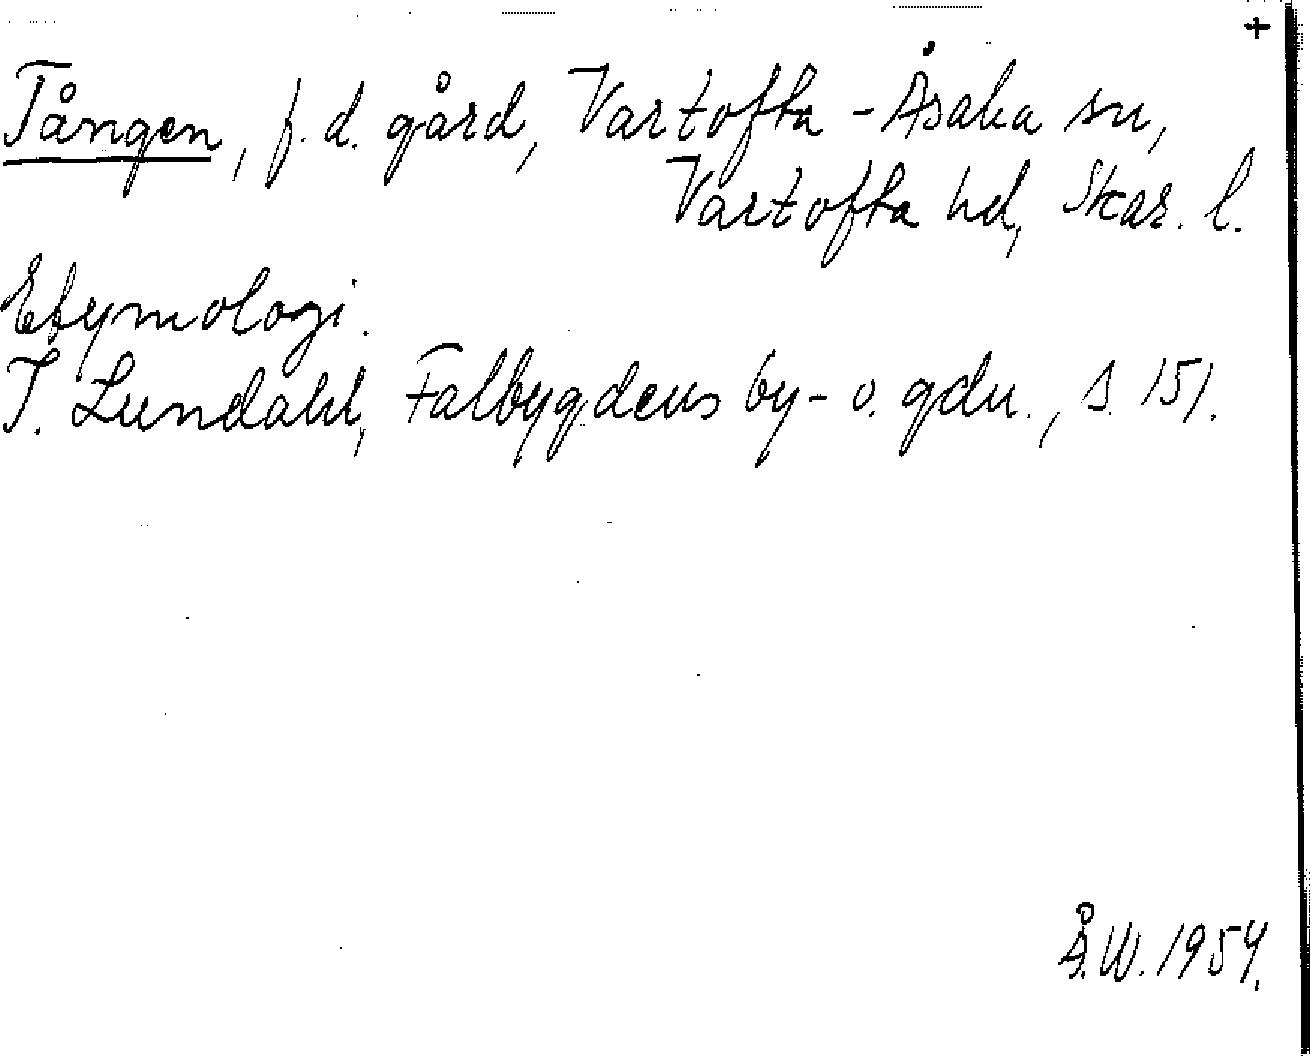 +
Tången, f. d. gård, Vartofta-Åsaka sn,
Vartofta hd, Skar. l.
Etymologi.
I. Lundahl, Falbygdens by- o. gdn., s. 151.
Å.W. 1954.